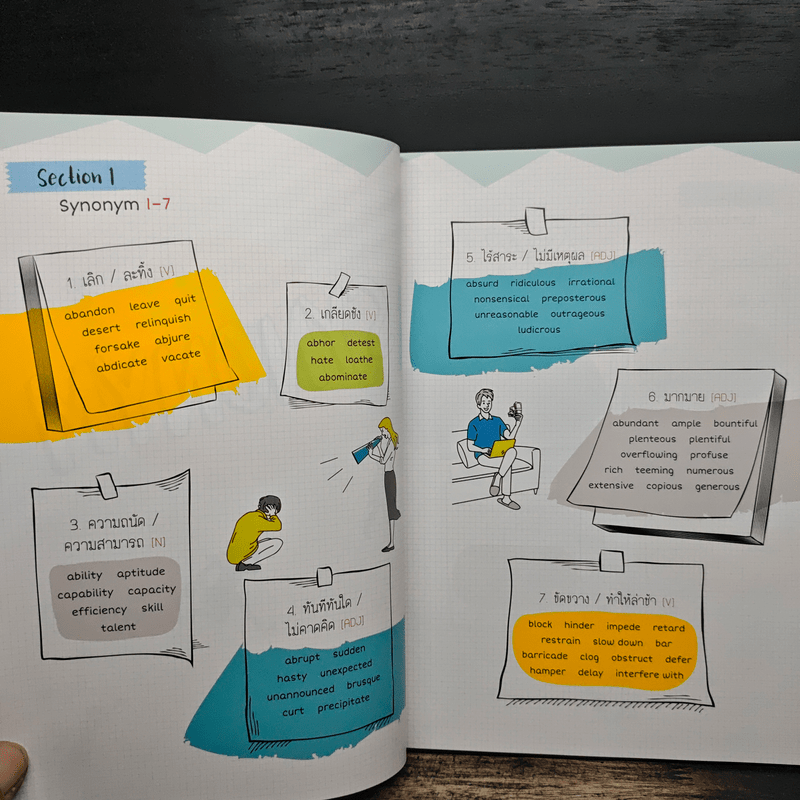 Section 1
Synonym 1-7
1. เลิก / ละทิ้ง [V]
abandon leave quit
desert relinquish
forsake abjure
abdicate vacate
2. เกลียดชัง [V]
abhor detest
hate loathe
abominate
3. ความถนัด /
ความสามารถ [N]
ability aptitude
capability capacity
efficiency skill
talent
4. ทันทีทันใด /
ไม่คาดคิด [ADJ]
abrupt sudden
hasty unexpected
unannounced brusque
curt precipitate
5. ไร้สาระ / ไม่มีเหตุผล [ADJ]
absurd ridiculous irrational
nonsensical preposterous
unreasonable outrageous
ludicrous
6. มากมาย [ADJ]
abundant ample bountiful
plenteous plentiful
overflowing profuse
rich teeming numerous
extensive copious generous
7 ขัดขวาง / ทำให้ล่าช้า [V]
block hinder impede retard
restrain slow down bar
barricade clog obstruct defer
hamper delay interfere with